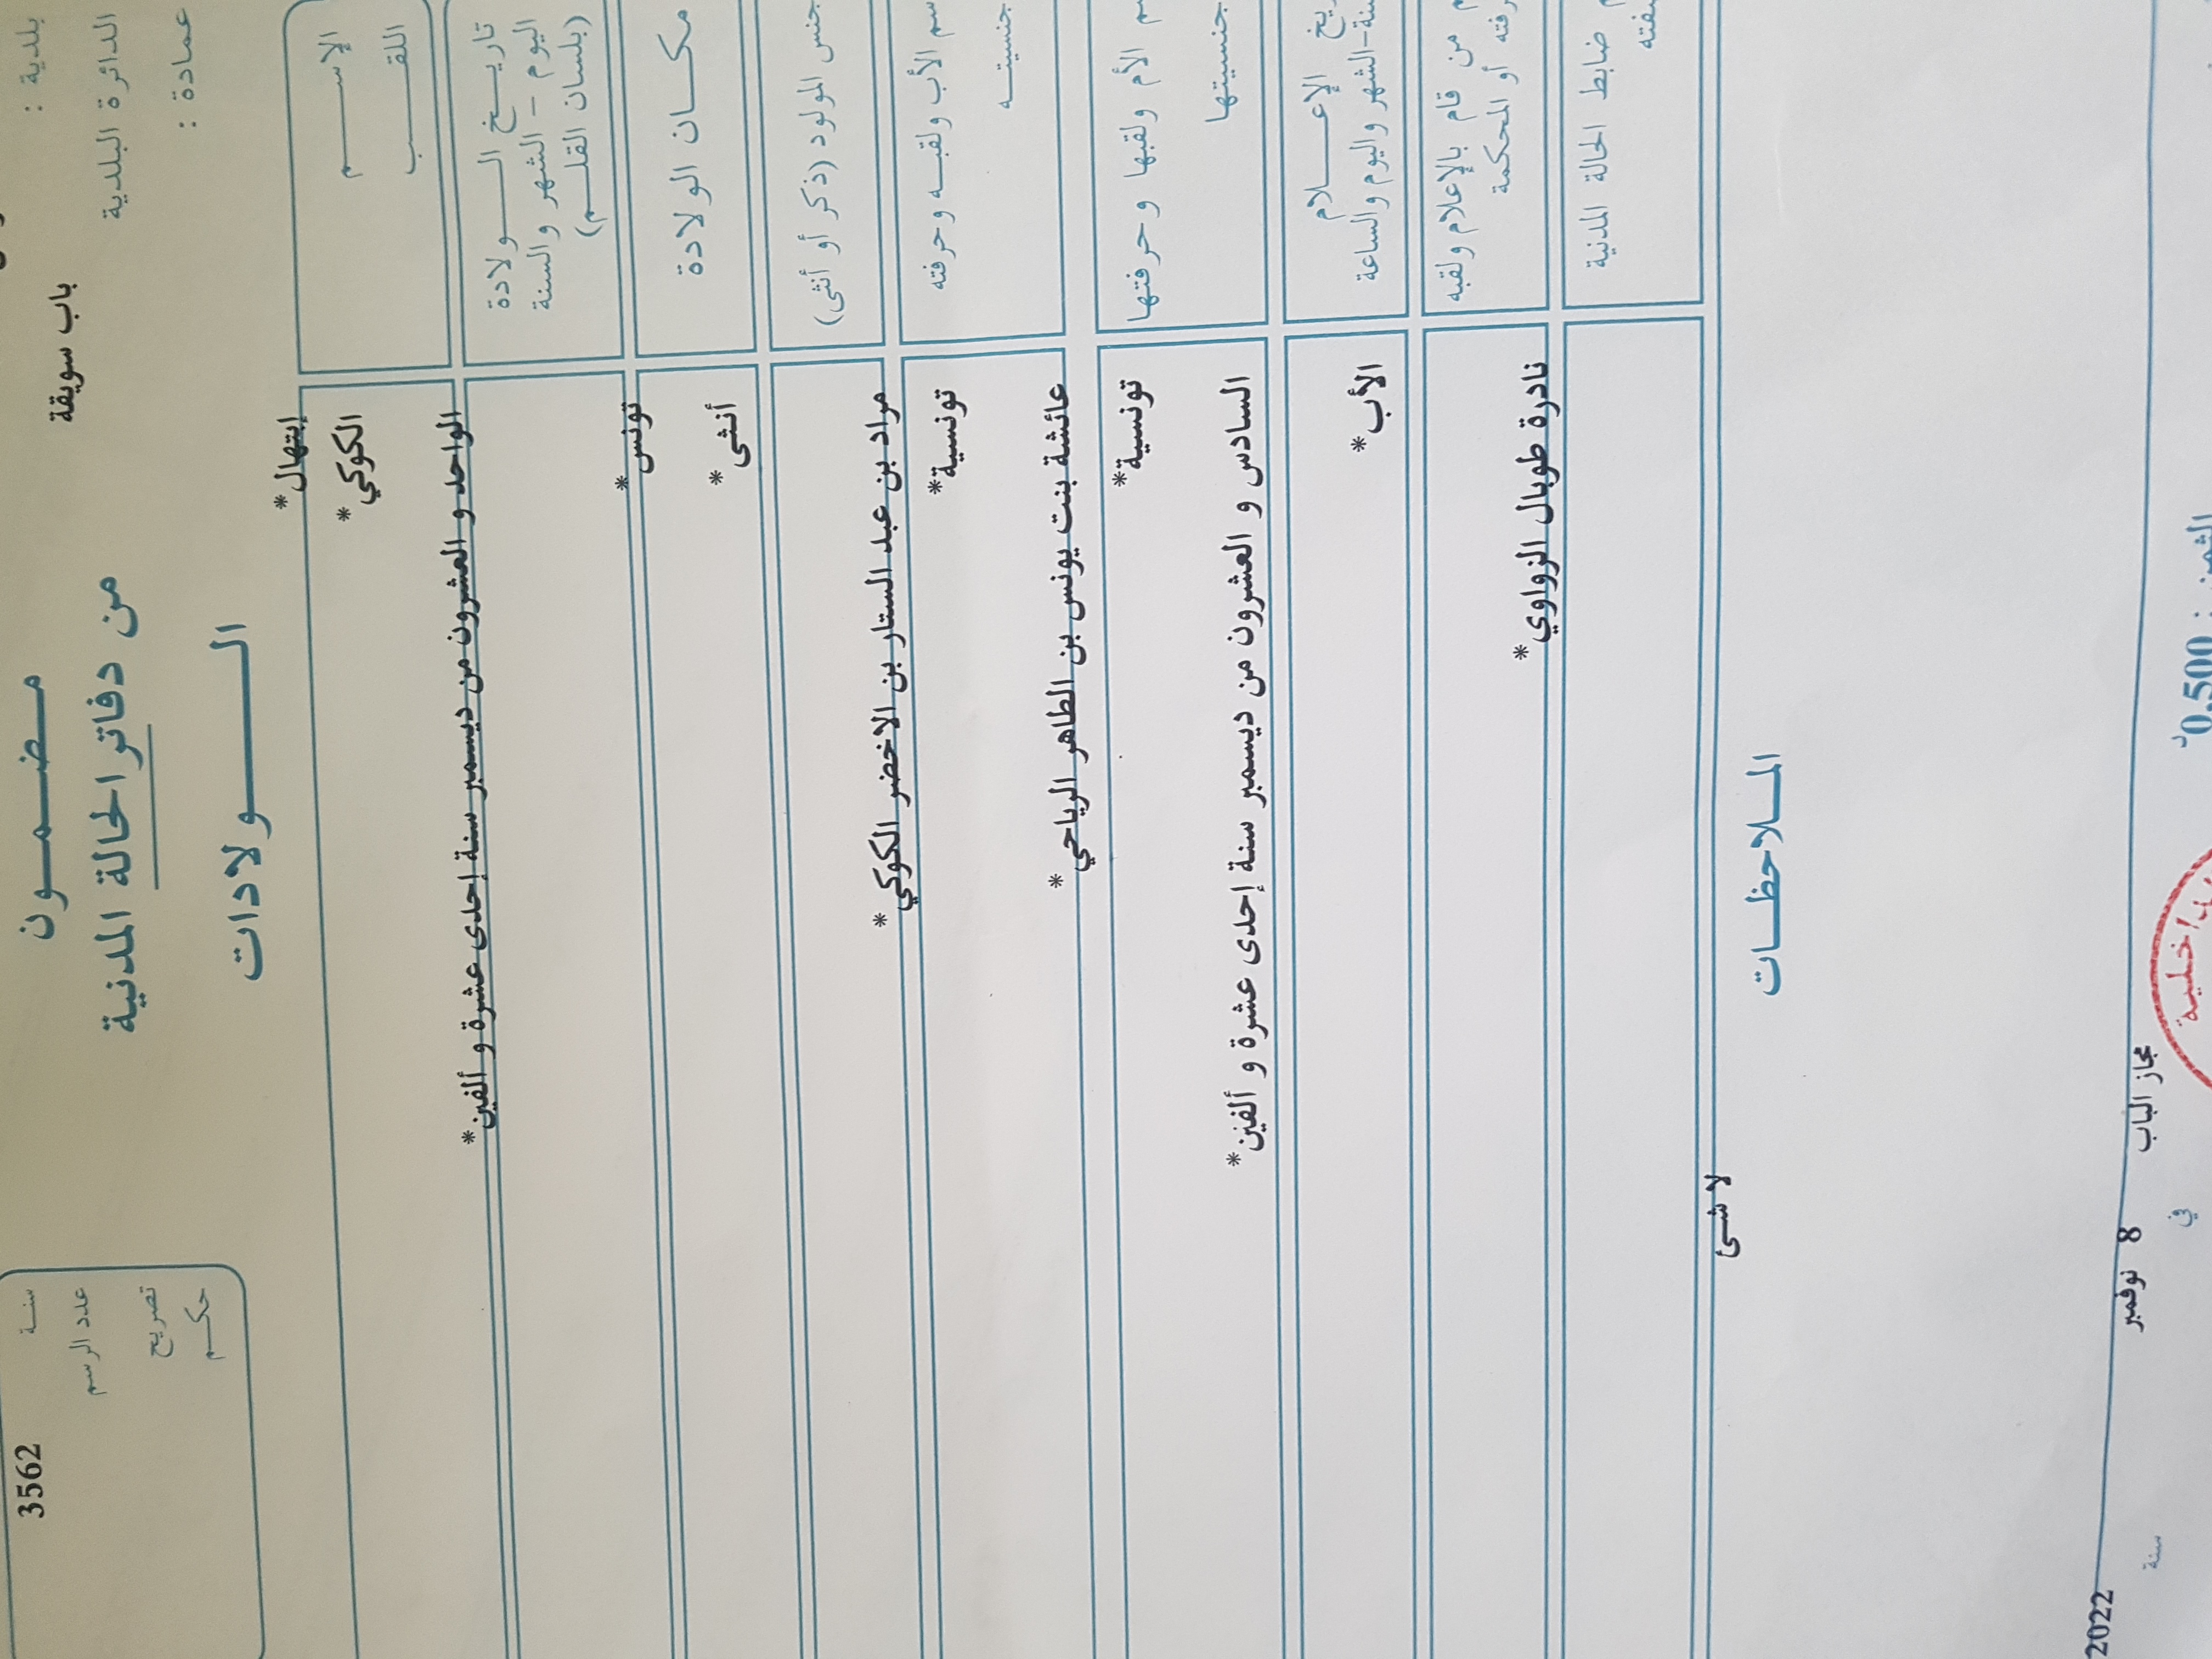 بلدية :
باب سويقة
الدائرة البلدية
عمادة :
مضمون
من دفاتر الحالة المدنية
الولادات
3562
سنة
عدد الرسم
تصريح
حكم
الإسم
إبتهال*
اللقب
الكوكي*
تاريخ الولادة
اليوم – الشهر والسنة
(بلسان القلم)
الواحد و العشرون من ديسمبر سنة إحدى عشرة و ألفين*
مكان الولادة
تونس*
جنس المولود (ذكر أو أنثى)
أنثى*
الأب ولقبه وحرفته
مراد بن عبد الستار بن الاخضر الكوكي*
جنسيته
تونسية*
الأم ولقبها وحرفتها
عائشة بنت يونس بن الطاهر الرياحي*
جنسيتها
تونسية*
الإعلام
الشهر واليوم والساعة
السادس و العشرون من ديسمبر سنة إحدى عشرة و ألفين*
من قام بالإعلام ولقبه
أو المحكمة
الأب*
ضابط الحالة المدنية
نادرة طوبال الزواوي*
الملاحظات
لا شئ
مجاز الباب في 8 نوفمبر سنة 2022
الثمن : 0,500